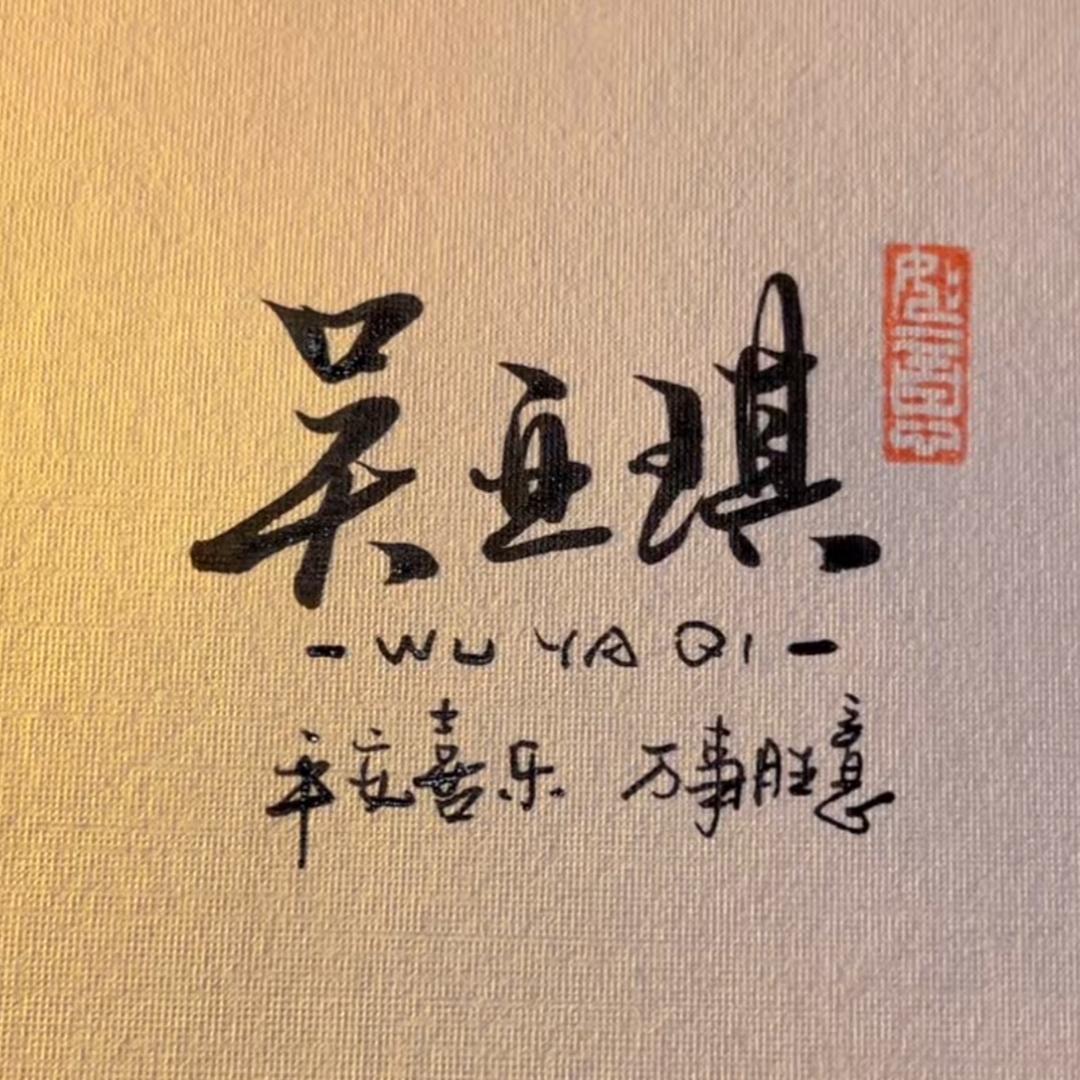 吴亚琪
- WU YA QI -
平安喜乐 万事胜意